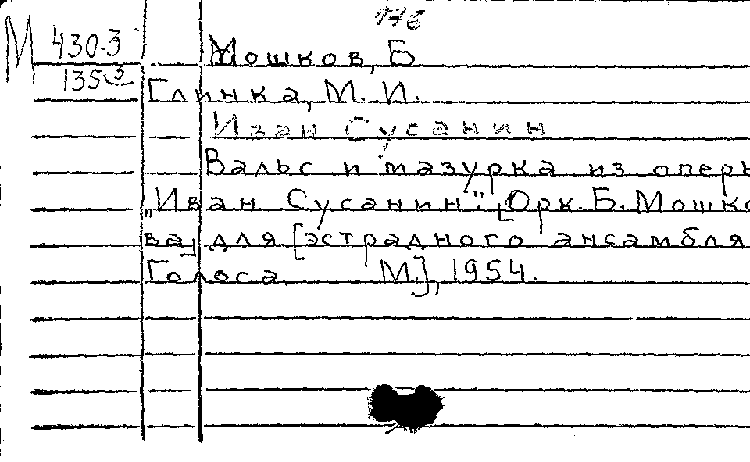 М 430-3
Мошков, Б
135
Глинка, М. И.
Иван Сусанин
Вальс и мазурка из оперы
„Иван Сусанин". [Орк. Б. Мошко
ва] для [эстрадного ансамбля
Голоса М.], 1954.